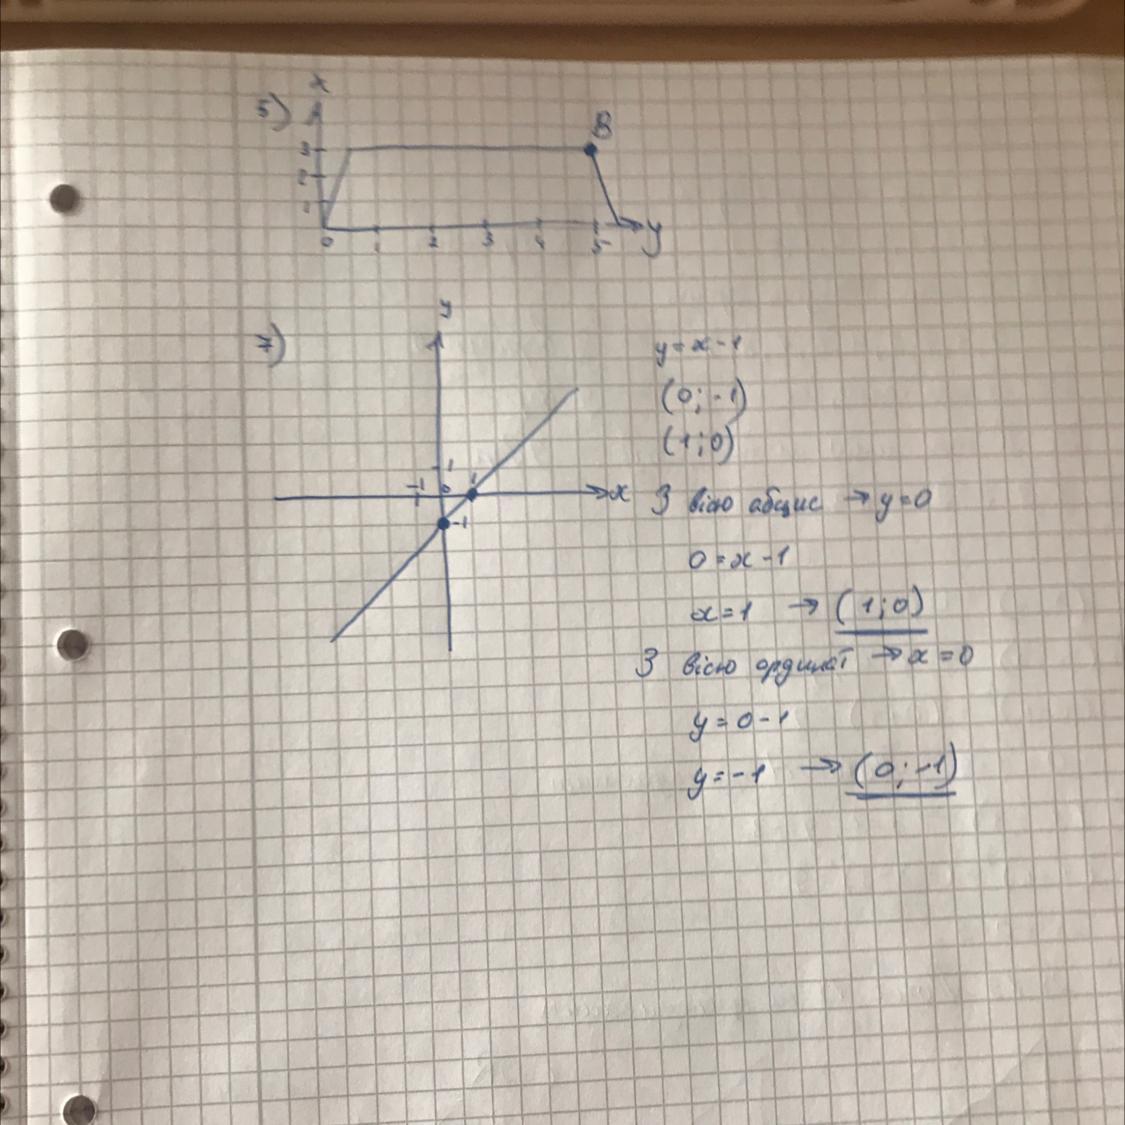 5)
x
B
3
2
1
0 1 2 3 4 5 y
7)
y
y = x - 1
(0; -1)
(1; 0)
1
-1 0 1 x
-1
З вісю абцис → y = 0
0 = x - 1
x = 1 → (1; 0)
З вісю ординат → x = 0
y = 0 - 1
y = -1 → (0; -1)